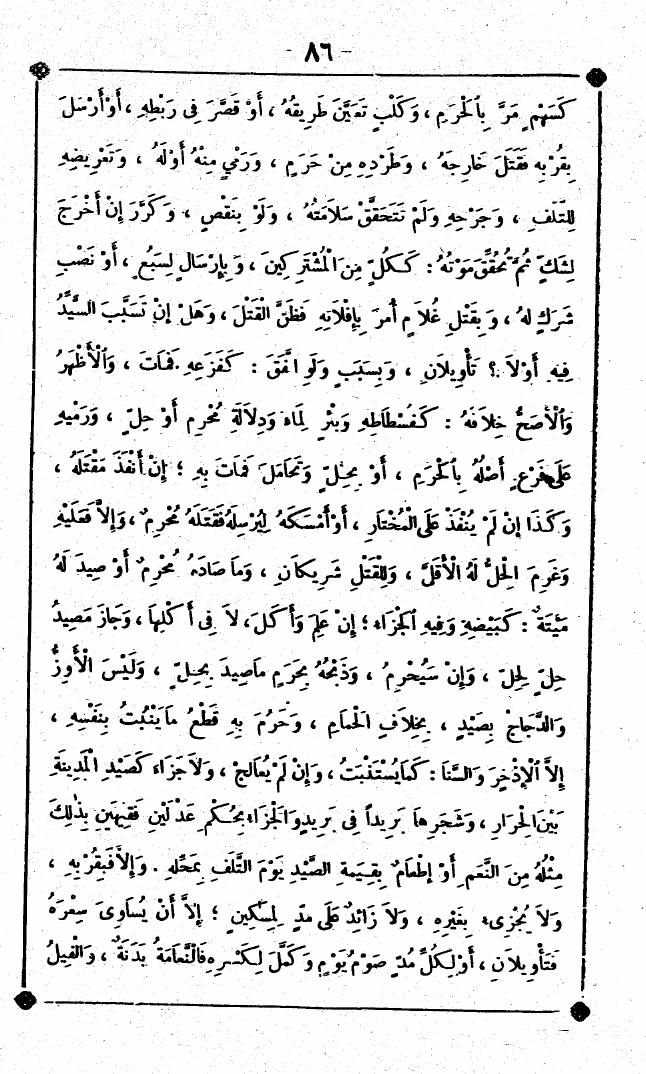 - ٨٦ -
كَسَهْمٍ مَرَّ بِالْحَرَمِ ، وَكَلْبٍ تَعَيَّنَ طَرِيقُهُ ، أَوْ قَصَّرَ فِى رَبْطِهِ ، أَوْ أَرْسَلَ
بِقُرْبِهِ فَقَتَلَ خَارِجَهُ ، وَطَرْدِهِ مِنْ حَرَمٍ ، وَرَمْيٍ مِنْهُ أَوْ لَهُ ، وَتَعْرِيضِهِ
لِلتَّلَفِ ، وَجَرْحِهِ وَلَمْ تَتَحَقَّقْ سَلَامَتُهُ ، وَلَوْ بِنَقْصٍ ، وَكَرَّرَ إِنْ أَخْرَجَ
لِشَكٍّ ثُمَّ تُحُقِّقَ مَوْتُهُ : كَكُلٍّ مِنَ الْمُشْتَرِكِينَ ، وَبِإِرْسَالٍ لِسَبُعٍ ، أَوْ نَصْبِ
شَرَكٍ لَهُ ، وَبِقَتْلِ غُلَامٍ أُمِرَ بِإِفْلَاتِهِ فَظَنَّ الْقَتْلَ ، وَهَلْ إِنْ تَسَبَّبَ السَّيِّدُ
فِيهِ أَوْلاَ ؟ تَأْوِيلَانِ ، وَبِسَبَبٍ وَلَوِ اتَّفَقَ : كَفَزَعِهِ فَمَاتَ ، وَالْأَظْهَرُ
وَالْأَصَحُّ خِلَافُهُ : كَفُسْطَاطِهِ وَبِئْرٍ لِمَاءٍ وَدِلَالَةِ مُحْرِمٍ أَوْ حِلٍّ ، وَرَمْيِهِ
عَلَى فَرْعٍ أَصْلُهُ بِالْحَرَمِ ، أَوْ بِحِلٍّ وَتَحَامَلَ فَمَاتَ بِهِ ؛ إِنْ أَنْفَذَ مَقْتَلَهُ ،
وَكَذَا إِنْ لَمْ يُنْفِذْ عَلَى الْمُخْتَارِ ، أَوْ أَمْسَكَهُ لِيُرْسِلَهُ فَقَتَلَهُ مُحْرِمٌ ، وَإِلاَّ فَعَلَيْهِ
وَغَرِمَ الْحِلُّ لَهُ الْأَقَلَّ ، وَلِلْقَتْلِ شَرِيكَانِ ، وَمَا صَادَهُ مُحْرِمٌ أَوْ صِيدَ لَهُ
مَيْتَةٌ : كَبَيْضِهِ وَفِيهِ الْجَزَاءُ ؛ إِنْ عَلِمَ وَأَكَلَ ، لاَ فِى أَكْلِهَا ، وَجَازَ مَصِيدُ
حِلٍّ لِحِلٍّ ، وَإِنْ سَيُحْرِمُ ، وَذَبْحُهُ بِحَرَمٍ مَاصِيدَ بِحِلٍّ ، وَلَيْسَ الْأَوِزُّ
وَالدَّجَاجُ بِصَيْدٍ ، بِخِلَافِ الْحَمَامِ ، وَحَرُمَ بِهِ قَطْعُ مَا يَنْبُتُ بِنَفْسِهِ ،
إِلاَّ الْإِذْخِرَ وَالسَّنَا : كَمَا يُسْتَنْبَتُ ، وَإِنْ لَمْ يُعَالَجْ ، وَلَا جَزَاءَ كَصَيْدِ الْمَدِينَةِ
بَيْنَ الْحِرَارِ ، وَشَجَرِهَا بَرِيداً فِى بَرِيدٍ وَالْجَزَاءُ بِحُكْمِ عَدْلَيْنِ فَقِيهَيْنِ بِذٰلِكَ
مِثْلُهُ مِنَ النَّعَمِ أَوْ إِطْعَامٌ بِقِيمَةِ الصَّيْدِ يَوْمَ التَّلَفِ بِمَحِلِّهِ . وَإِلاَّ فَبِقُرْبِهِ ،
وَلاَ يُجْزِىءُ بِغَيْرِهِ ، وَلاَ زَائِدٌ عَلَى مُدٍّ لِمِسْكِينٍ ؛ إِلاَّ أَنْ يُسَاوِىَ سِعْرَهُ
فَتَأْوِيلَانِ ، أَوْ لِكُلِّ مُدٍّ صَوْمُ يَوْمٍ وَكَمَّلَ لِكَسْرِهِ فَالنَّعَامَةُ بَدَنَةٌ ، وَالْفِيلُ